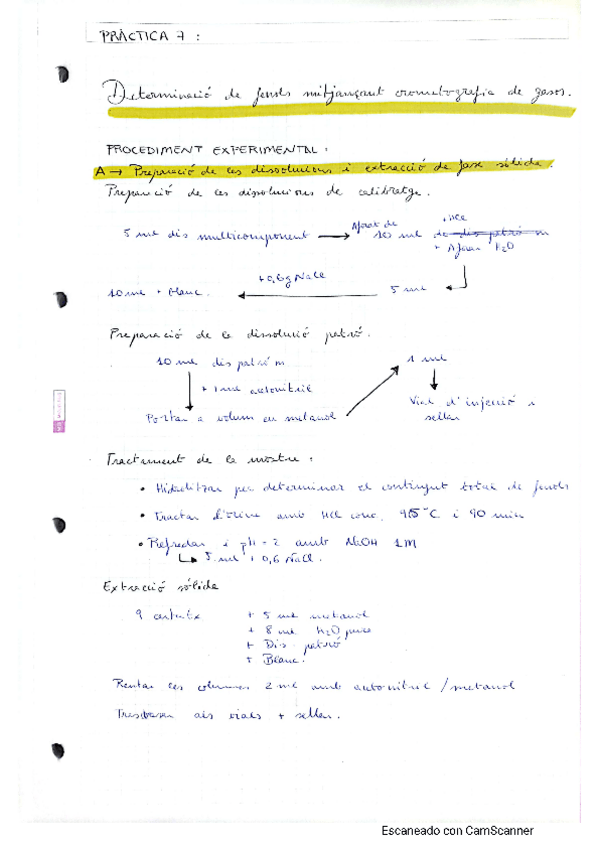 PRÀCTICA 7 :
Determinació de fenols mitjançant cromatografia de gasos.
PROCEDIMENT EXPERIMENTAL :
A → Preparació de les dissolucions i extracció de fase sòlida.
Preparació de les dissolucions de calibratge.
5 ml dis multicomponent → Aforat de 10 ml + HCl
+ Aforar H2O
10 ml + Blanc. ← +0,6g NaCl 5 ml
Preparació de la dissolució patró.
10 ml dis patró m
+ 1 ml acetonitril
Portar a volum en metanol
1 ml
Vial d'injecció i
sellar
Tractament de la mostra :
• Hidrolitzar per determinar el contingut total de fenols
• Tractar l'orina amb HCl conc. 95°C i 90 min
• Refredar i pH = 2 amb NaOH 1M
↳ 5 ml + 0,6 NaCl.
Extracció sòlida
9 cartutx + 5 ml metanol
+ 8 ml H2O pura
+ Dis. patró
+ Blanc.
Rentar les columnes 2 ml amb acetonitril / metanol
Trasbasar als vials + sellar.
Escaneado con CamScanner